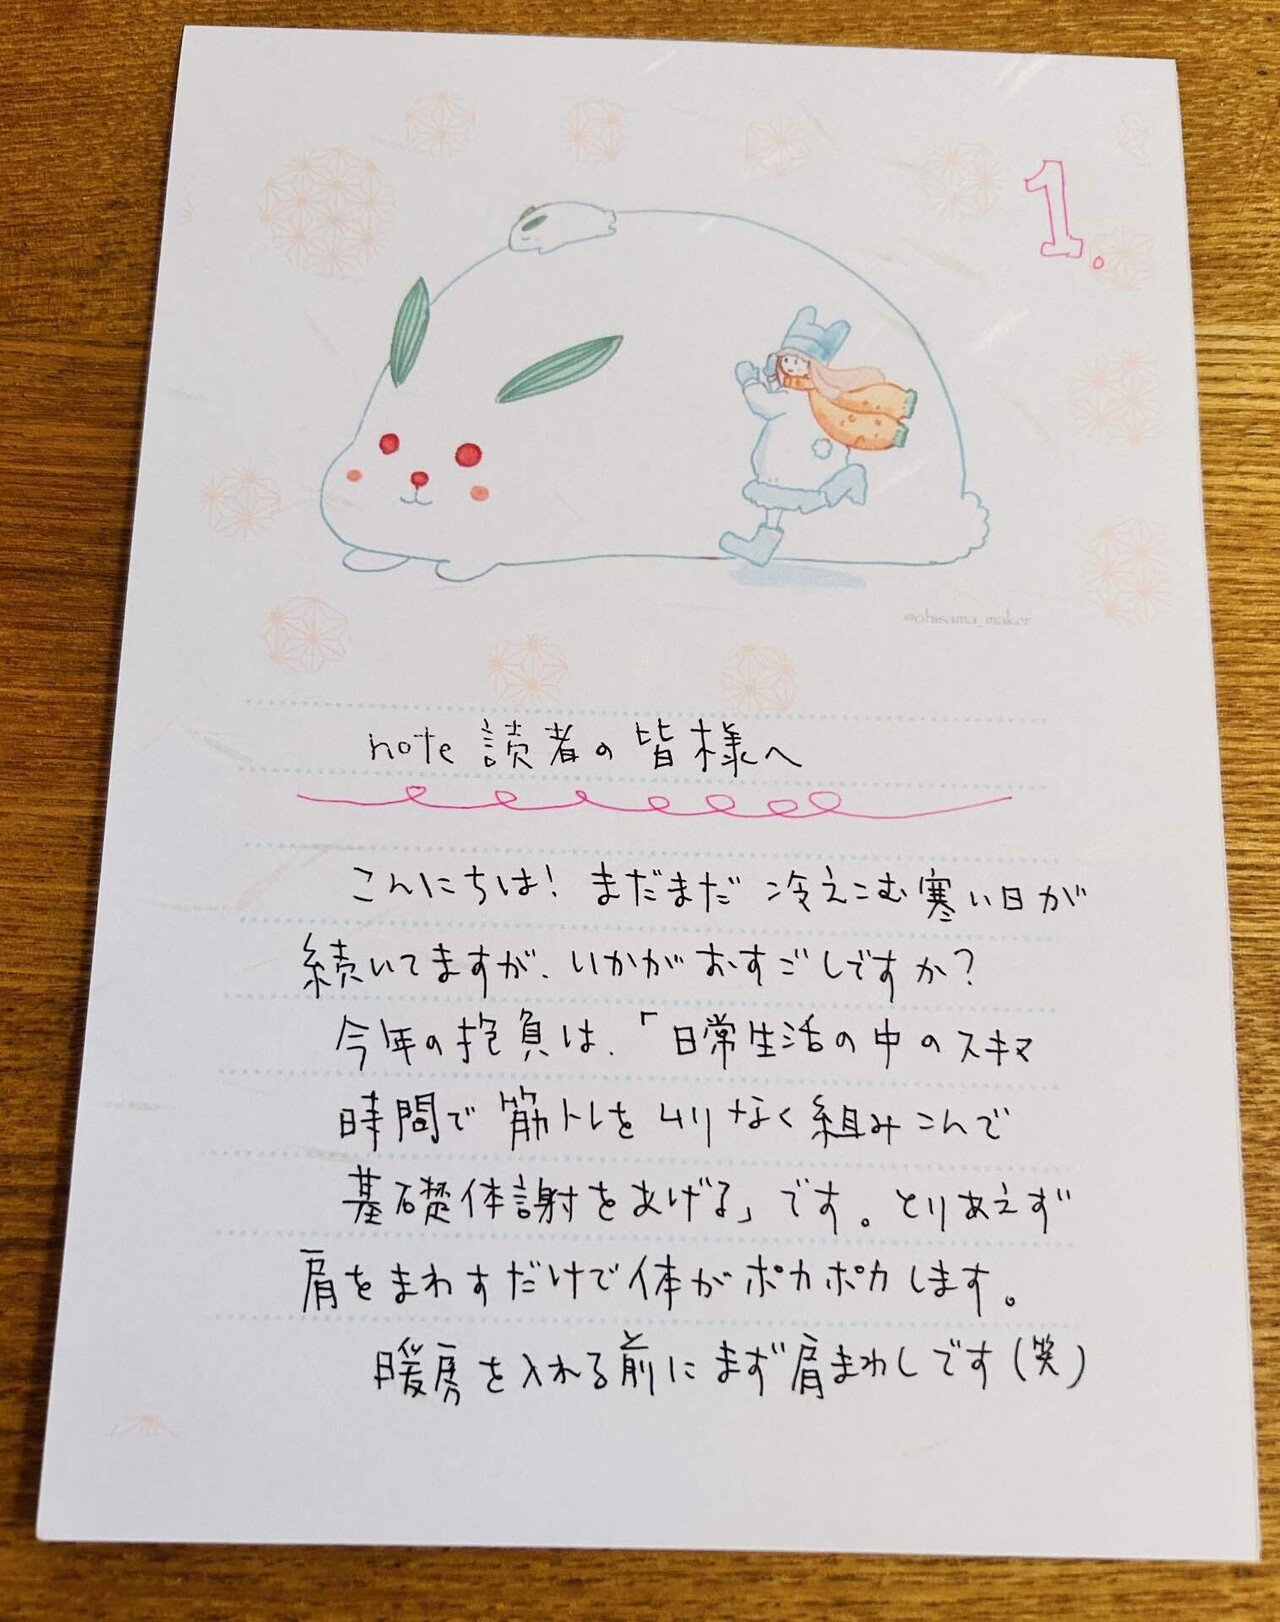 1.
@ohisama_maker
note 読者の皆様へ
こんにちは！まだまだ 冷えこむ寒い日が
続いてますが、いかがおすごしですか？
今年の抱負は、「日常生活の中のスキマ
時間で筋トレをムリなく組みこんで
基礎体謝をあげる」です。とりあえず
肩をまわすだけで体がポカポカします。
暖房を入れる前にまず肩まわしです(笑)